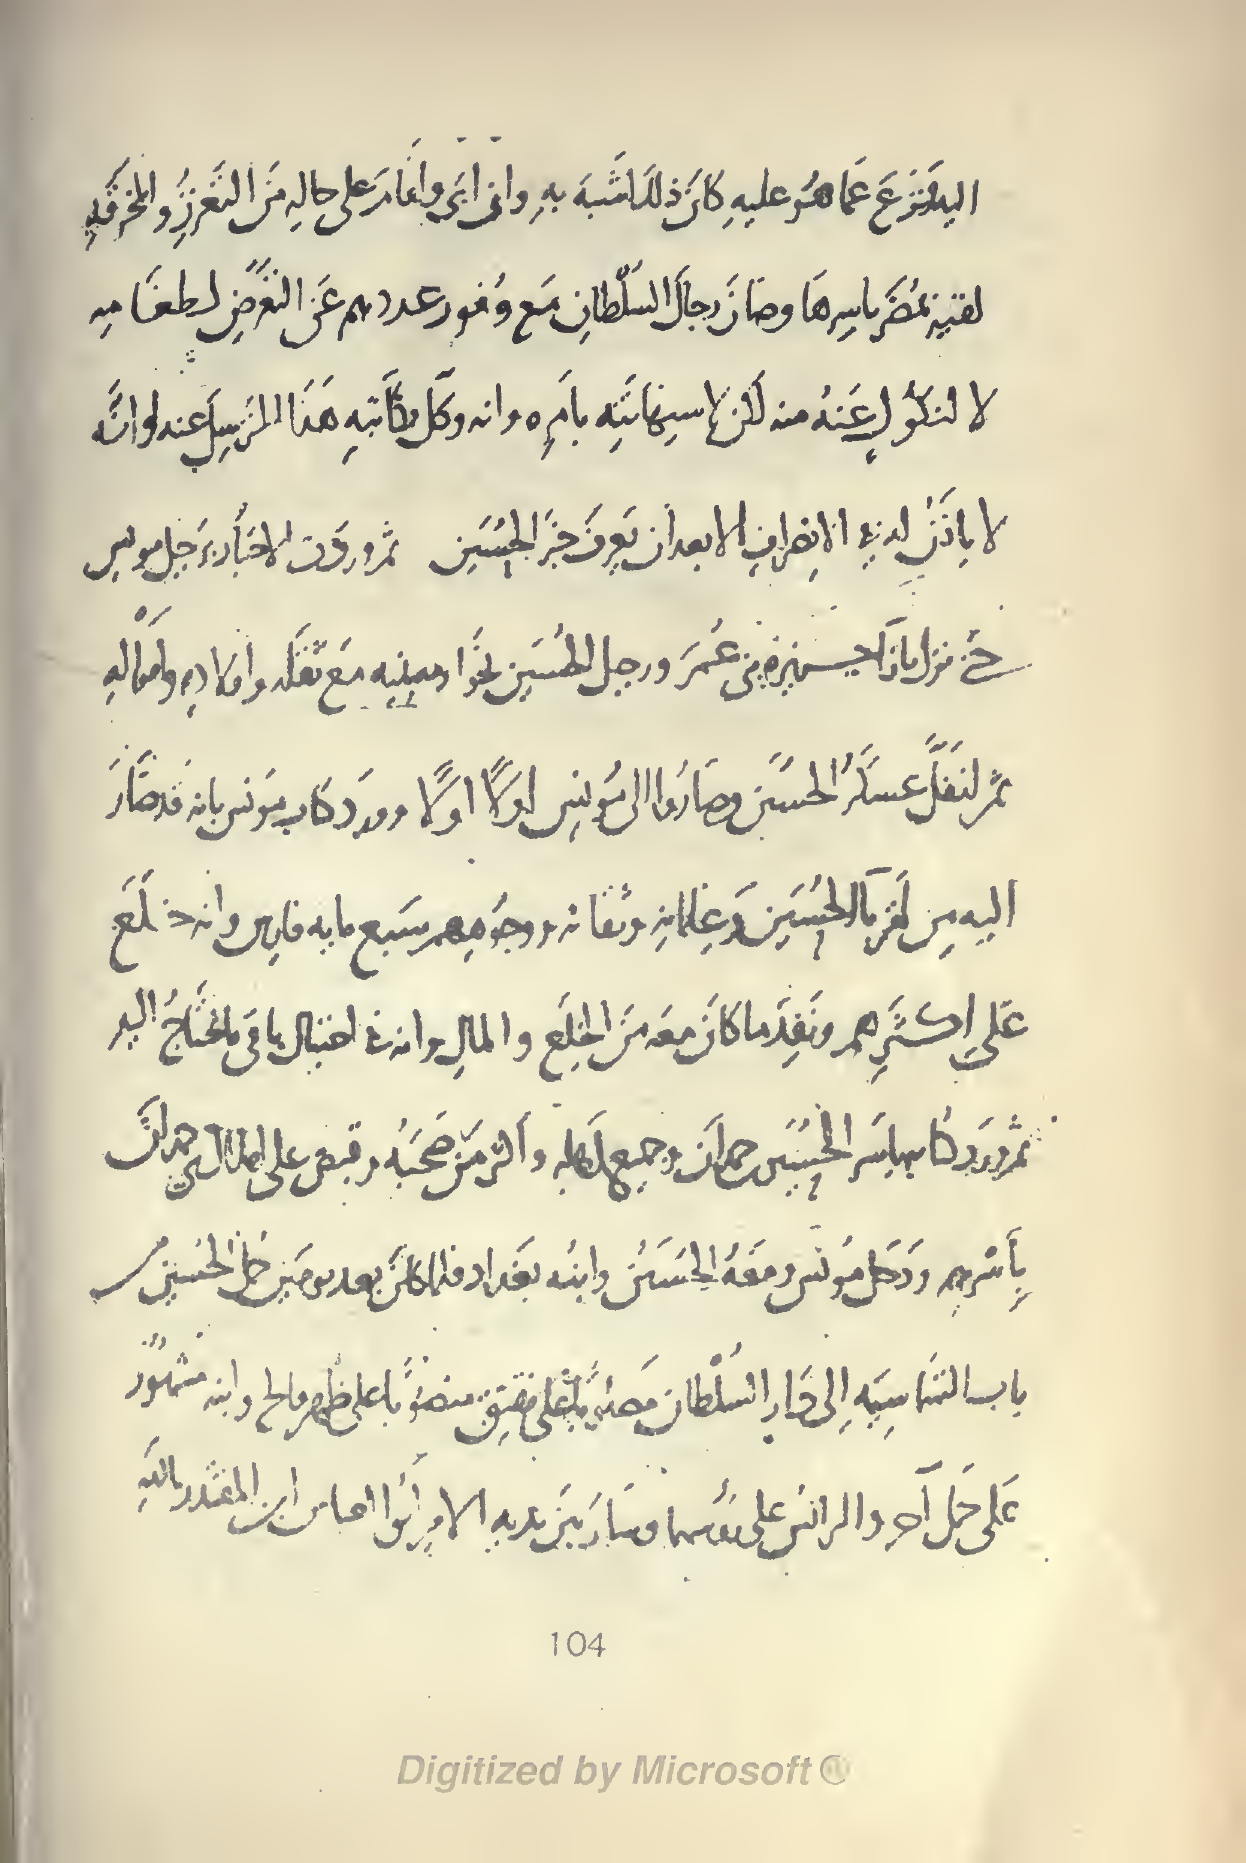 اليه لنزع عما هو عليه كان ذلك اشبه به وان ابى واقام على حاله من التعزز والمخرقه
لقيته بمضر باسرها وصان رجال السلطان مع وفور عددهم عن التعرض
لا لنكول عنه منه لكن لاستهانته بامره وانه وكل بكاتبه هذا المرسل عنده وانه
لا ياذن له في الانصراف الا بعد ان يعرف خبر الحسين ثم وردت الاخبار برحيل مونس
حتى نزل بازا جزيره بني عمر ورحل الحسين نحو ارمينيه مع ثقله واولاده وامواله
ثم لتفلل عسكر الحسين وصاروا الى مونس اولا اولا وورد كتاب مونس بانه قد صار
اليه من الحسين وغلمانه وثقاته ووجوههم سبع مايه فارس وانه خلع
على اكثرهم ونفد ما كان معه من الخلع والمال وانه في احتيال باقي ما يحتاج اليه
ثم ورد كتابه باسر الحسين حمدان وجميع اهله واكثر من صحبه وقبض على املاك بني حمدان
باسرهم ودخل مونس ومعه الحسين وابنه بغداد فلما كان بعد يومين حمل الحسين من
باب الشماسيه الى دار السلطان مصلوبا على نقنق منصوبا على ظهر فالج وابنه مشهور
على جمل آخر والبرانس على رووسهما وسار بين يديه الامير ابوا العباس ابن المقتدر بالله
104
Digitized by Microsoft ®